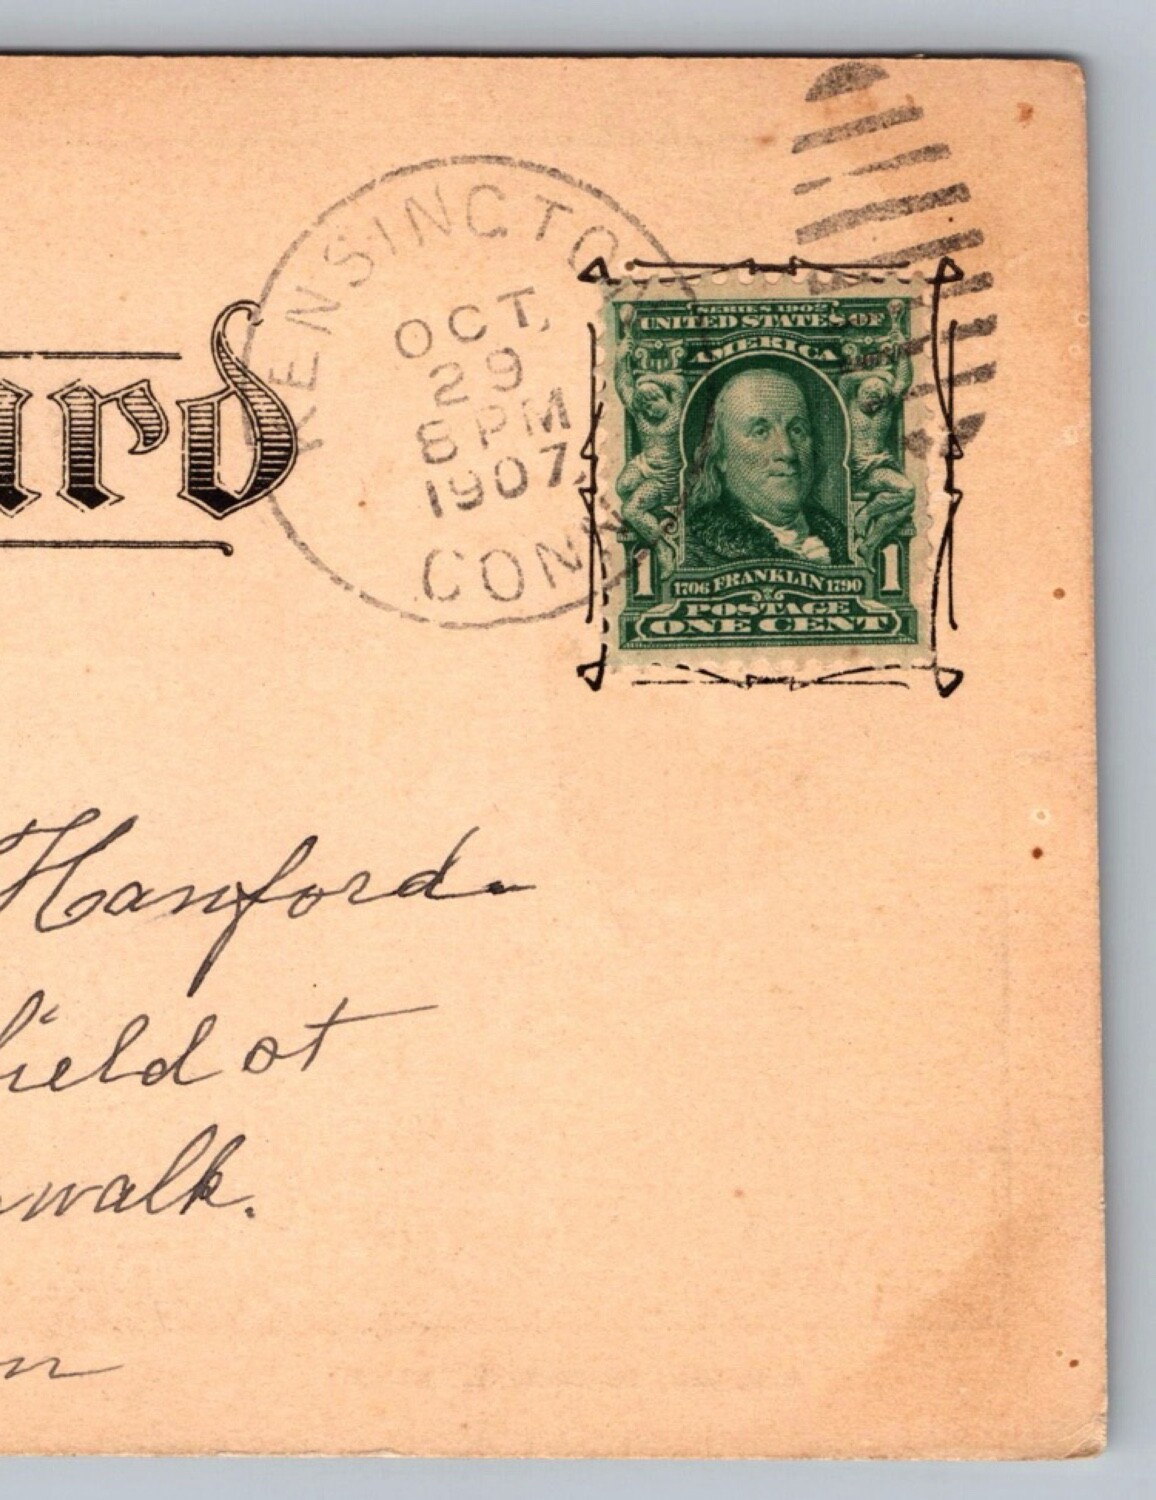 KENSINGTO
OCT,
29
8 PM
1907,
CONN
SERIES 1902
UNITED STATES OF
AMERICA
1 1706 FRANKLIN 1790 1
POSTAGE
ONE CENT
ard
Hanford.
field st
walk.
n